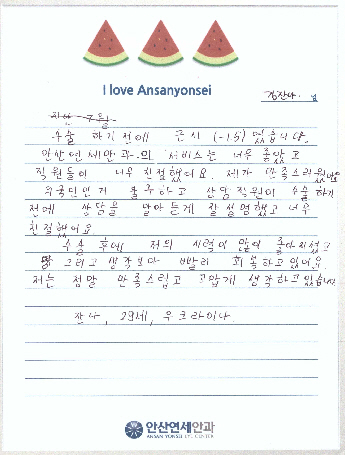 I love Ansanyonsei
님
지난 7월
수술 하기 전에 근시 (-1.5) 였습니다.
안산연세안과의 서비스는 너무 좋았고
직원들이 너무 친절했어요. 제가 만족스러웠
외국인인거 불구하고 상담직원이 수술하기
전에 상담을 알아듣게 잘 설명했고 너무
친절했어요
수술 후에 저의 시력이 많이 좋아지셨고
그리고 생각보다 빨리 회복하고 있어요.
저는 정말 만족스럽고 고맙게 생각하고있습니다
잔나, 29세, 우크라이나.
안산연세안과
ANSAN YONSEI EYE CENTER